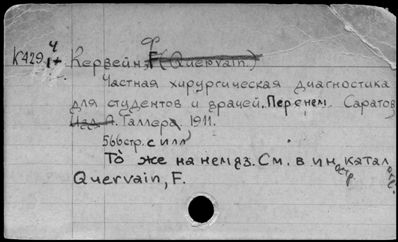 Ф
К429 ч
1+ Кервейн F (Quervain.)
Частная хирургическая диагностика
для студентов и врачей. Пер с нем. Саратов
Изд. А. Галлера. 1911.
566 стр. с илл
То же на нем яз. См. в ин. катал
Quervain, F.